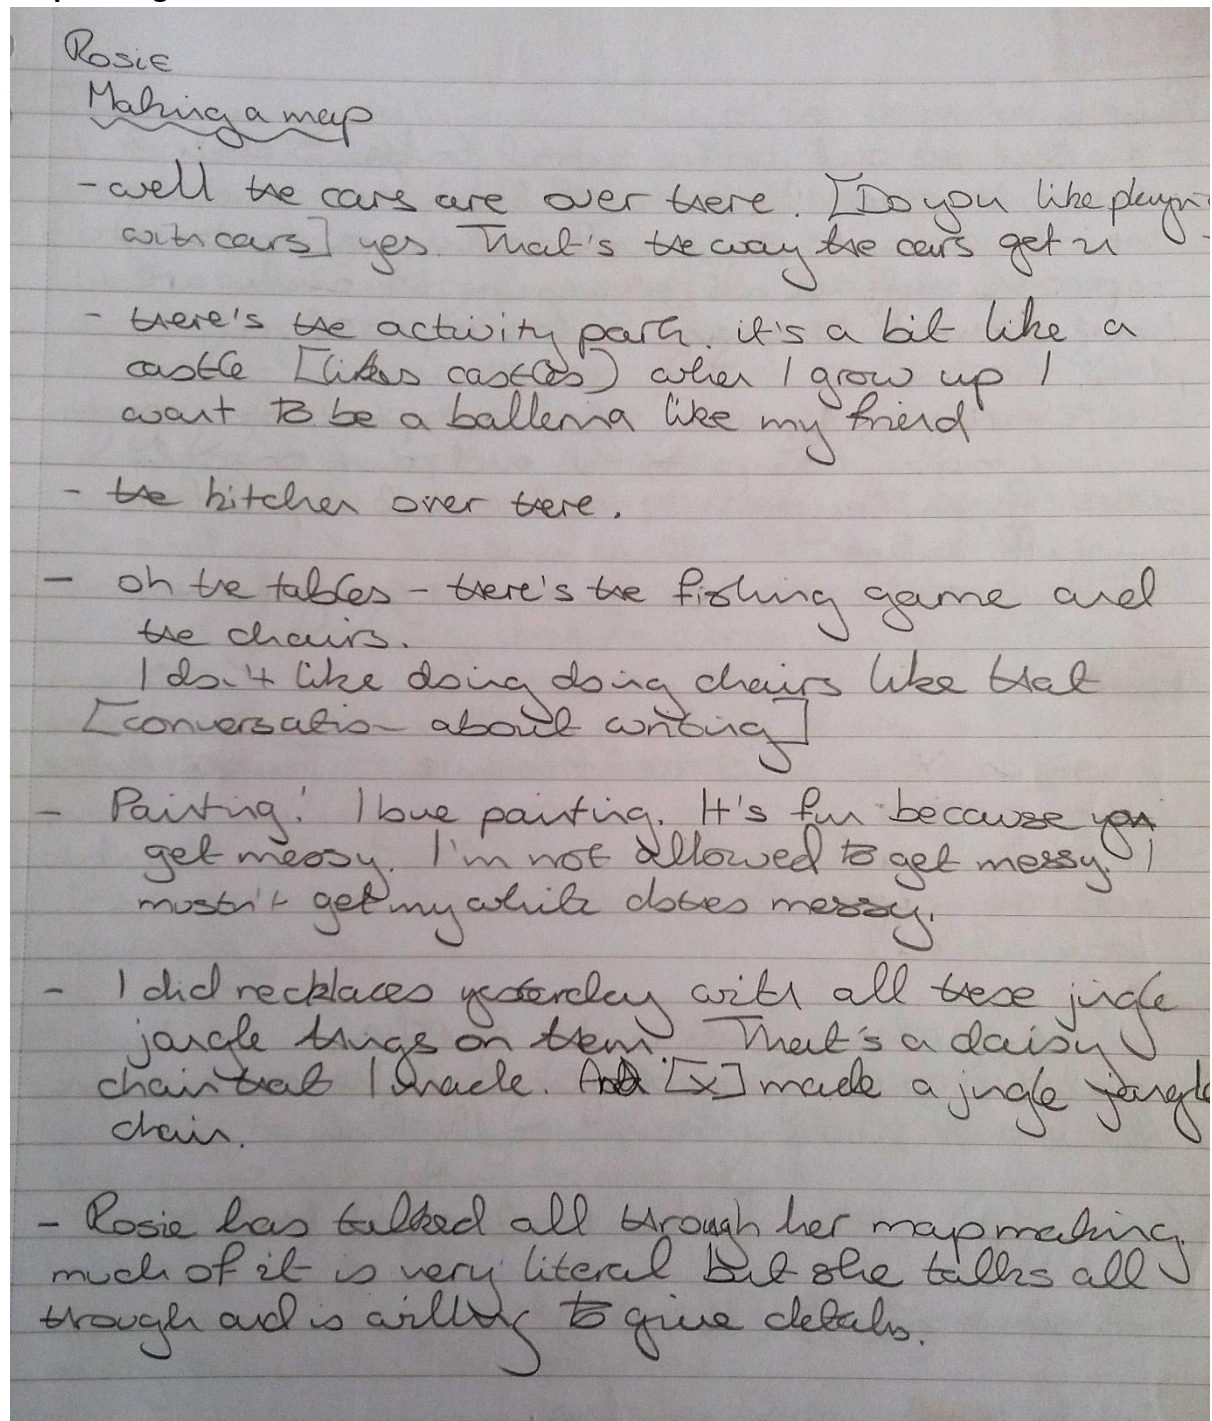 Rosie
Making a map
- well the cars are over there. [Do you like playin
with cars] yes. That's the way the cars get in
- there's the activity park. it's a bit like a
castle [likes castles] when I grow up I
want to be a ballerina like my friend
- the kitchen over there.
- oh the tables - there's the fishing game and
the chairs.
I don't like doing doing chairs like that
[conversation about writing]
- Painting! I love painting. It's fun because you
get messy. I'm not allowed to get messy. I
mustn't get my white clothes messy.
- I did necklaces yesterday with all these jingle
jangle things on them. That's a daisy
chain that I made. And [x] made a jingle jangle
chain.
- Rosie has talked all through her map making.
much of it is very literal but she talks all
through and is willing to give details.